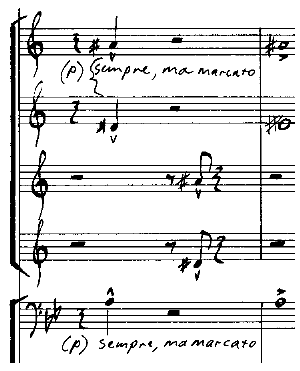 (p) sempre, ma marcato
(p) sempre, ma marcato